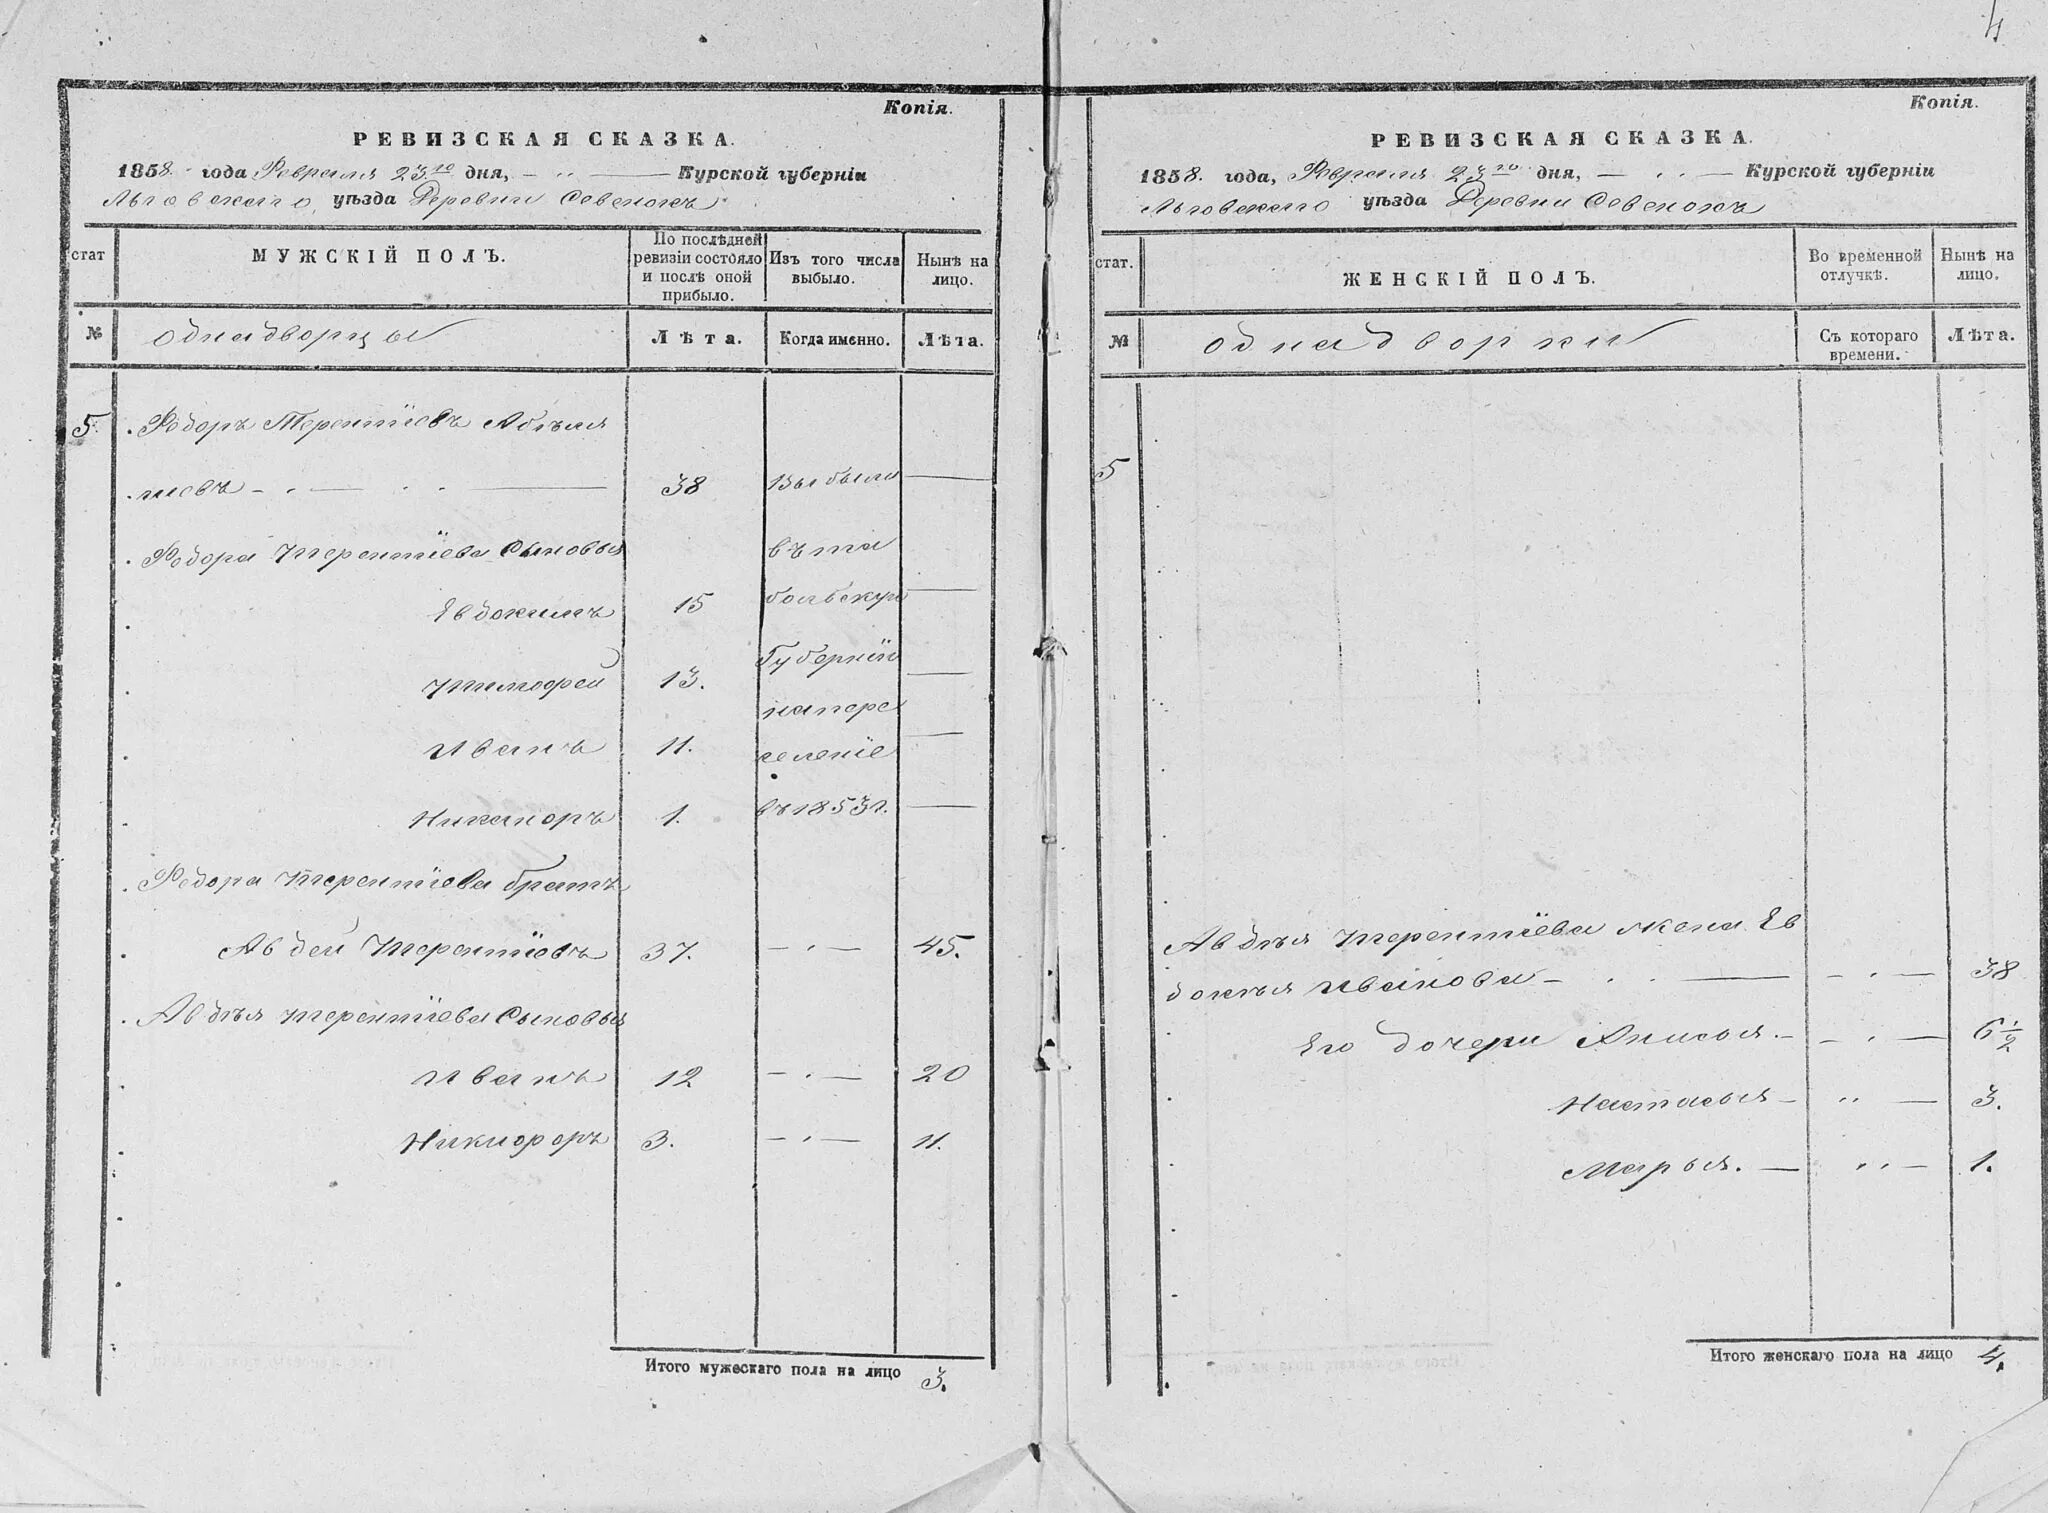 4
Копія.
РЕВИЗСКАЯ СКАЗКА.
1858. года Февраля 23го дня, — „ — Курской губерніи
Льговскаго уѣзда Деревни Савенокъ
стат
МУЖСКІЙ ПОЛЪ.
По послѣдней ревизіи состояло и послѣ оной прибыло.
Изъ того числа выбыло.
Нынѣ на лицо.
№
однадворцы
Лѣта.
Когда именно.
Лѣта.
5. Федоръ Терентіевъ
38 Выбыли —
Федора Терентіева Сыновья въ та
Евдокимъ 15 —
Тимофей 13. Губернію —
на пере
Иванъ 11. селеніе —
Никаноръ 1. въ 1853 г. —
Федора Терентіева братъ
Авдей Терентіевъ 37. — „ — 45.
Авдѣя Терентіева Сыновья
Иванъ 12 — „ — 20
Никифоръ 3. — „ — 11.
Итого мужескаго пола на лицо 3.
Копія.
РЕВИЗСКАЯ СКАЗКА.
1858. года, Февраля 23го дня, — „ — Курской губерніи
Льговскаго уѣзда Деревни Савенокъ
стат.
ЖЕНСКІЙ ПОЛЪ.
Во временной отлучкѣ.
Нынѣ на лицо.
№
однадворки
Съ котораго времени.
Лѣта.
5
Авдѣя Терентіева жена Ев
докѣя Иванова — „ — 38
Его дочери Анисья — „ — 6 1/2
Настасья — „ — 3.
Марья. — „ — 1.
Итого женскаго пола на лицо 4.